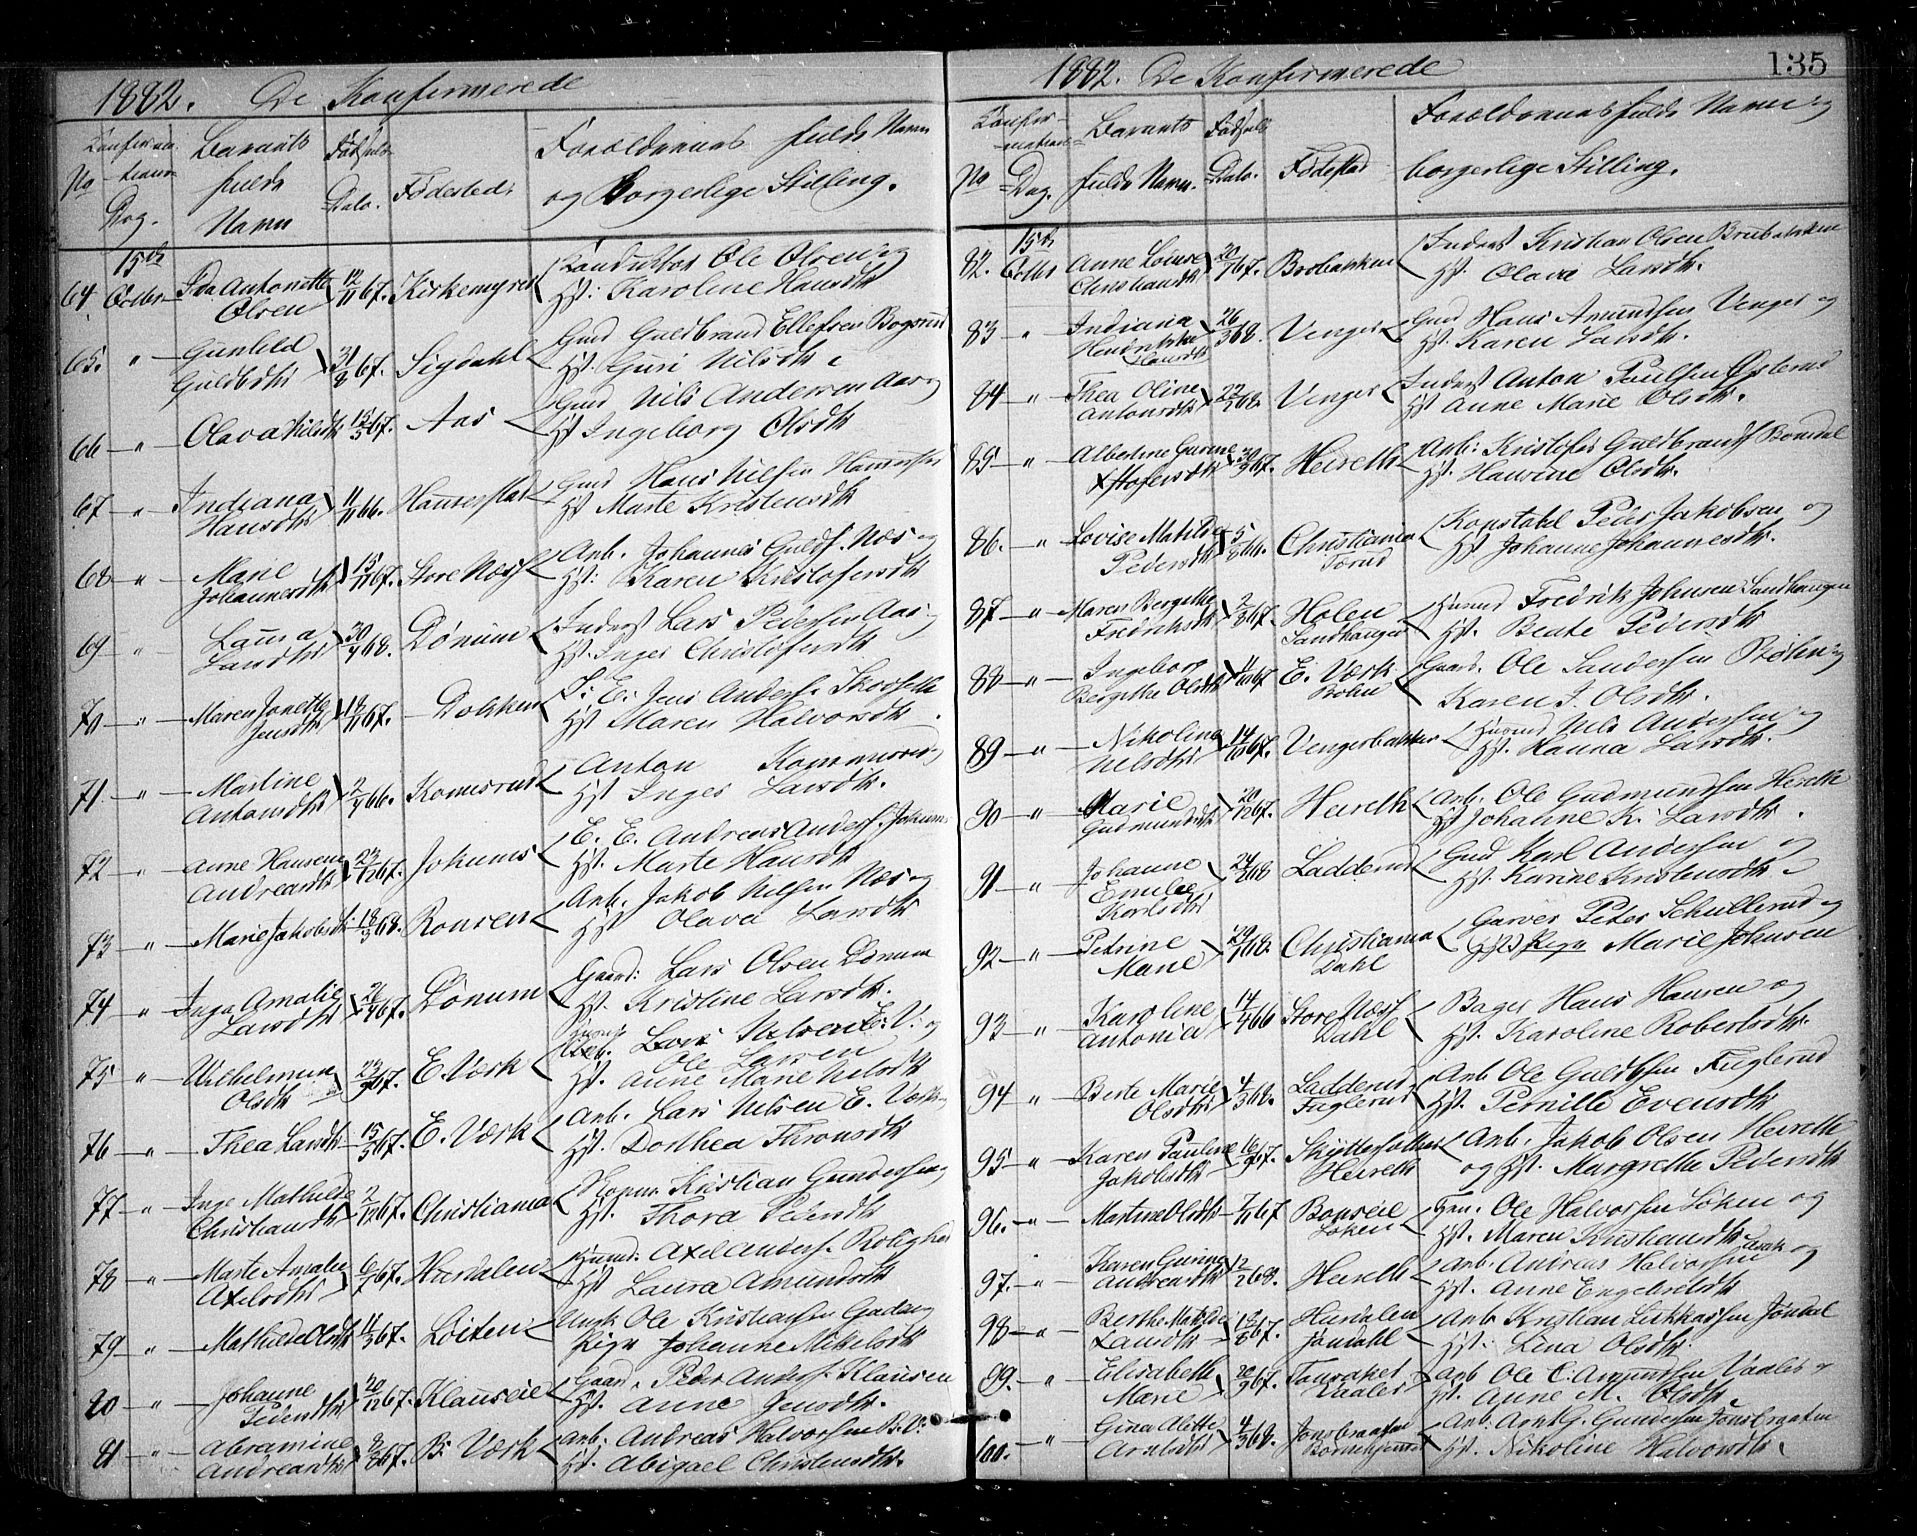 1882. De Konfirmerede
No
Konfirma-
tions
Dag.
Barnets
fulde
Navn
Fødsels
Dato.
Fødested.
Forældrenes fulde Navn
og borgerlige Stilling.
64 15de Octbr Ida Antonette Olsen 12/11 67. Kirkemyren Konduktør Ole Olsen og
Hst: Karoline Hansdtr
65. " Gunhild Guldbdtr 31/8 67. Sigdahl Gmd Guldbrand Ellefsen
Hst: Guri Nilsdtr
66 " Olava Nilsdtr 15/5 67. Aas Gmd Nils Andersen Aas og
Hst Ingeborg Olsdtr
67 " Indiana Hansdtr 11/11 66. Gmd Hans Nilsen
Hst Marte Kristensdtr
68 " Marie Johannesdtr 15/11 67. Store Næss Arb. Johannes Guldb. Næs og
Hst: Karen Kristofersdtr
69 " Laura Larsdtr 30/4 68. Dønum Inderst Lars Pedersen Aas
Hst. Inger Christofersdtr
70 " Maren Jonette Jensdtr 18/11 67. Dokken Jens Anders.
Hst Maren Halvorsdtr
71 " Martine Antonsdtr 2/4 66. Komnerud Anton Komnerud
Hst Inger Larsdtr.
72 " Anne Hansene Andreasdtr 23/12 67. Johnrud E. E. Andreas Anders.
Hst. Marte Hansdtr
73 " Marie Jakobsdt: 18/3 68. Ronren Arb. Jakob Nilsen Næs og
Hst Olava Larsdtr
74 " Inga Amalie Larsdtr 21/4 67. Dønum Gaard: Lars Olsen Dønum
Hst. Kristine Larsdtr.
75 " Wilhelmine Olsdtr 23/9 67. E. Værk Nilsen E. V. og
Ole Larsen
Hst. Anne Marie Nilsdtr
76 " Thea Larsdtr 15/5 67. E. Værk Arb. Lars Nilsen E. Værk
Hst. Dorthea Thronsdtr
77 " Inga Mathilde Christiansdtr 2/12 67. Christiania Kristian Gundersen
Hst. Thora Pedersdtr
78 " Marte Amalie Axelsdtr 6/7 67. Hurdalen Husmd: Axel Anders.
Hst Laura Amundsdtr
79 " Mathilde Olsdtr 11/3 67. Løiten Ungk Ole Kristiansen
Pige Johanne Mikelsdtr
80 " Johanne Pedersdtr 20/12 67. Klauseie Gaard. Peder Anders. Klausen
Hst. Anne Jensdtr.
81 " Abramine Andreasdtr 8/8 67. B. Værk Arb: Andreas Halvorsen B. V.
Hst. Abigael Christensdtr.
1882. De Konfirmerede 135
No
Konfir-
mations-
Dag.
Barnets
fulde Navn.
Fødsels
Dato.
Fødested
Forældrenes fulde Navn og
borgerlige Stilling.
82. 15de Octbr Anne Louise Christiansdtr 20/1 67. Brobakken Inderst Kristian Olsen Brobakken
Hst. Olava Larsdtr.
83 " Indiana Hendrikke Hansdtr 26/3 68. Venger Gmd Hans Amundsen Venger og
Hst. Karen Larsdtr.
84 " Thea Oline Antonsdtr 22/2 68. Venger Inderst Anton Poulsen
Hst Anne Marie Olsdtr.
85 " Albertine Gurine Kstofersdtr 30/9 67. Heireth Arb: Kristofer Guldbrands.
Hst. Hansine Olsdtr.
86. " Lovise Matilde Pedersdtr 5/8 66. Christiania Konstabl Peder Jakobsen og
Hst Johanne Johannesdtr.
87 " Maren Bergithe Fredriksdtr 2/8 67. Holen Sandhaugen Husmd Fredrik Johnsen Sandhaugen
Hst. Beate Pedersdtr
88 " Ingeborg Bergithe Olsdtr 11/10 67 E. Værk Bøhn Gaard. Ole Sandersen Bøhn og
Karen J. Olsdtr.
89 " Nikoline Nilsdtr 14/10 67. Vengerbakken Husmd Nils Andersen og
Hst. Hanna Larsdtr.
90 " Marie Gudmundsdtr 20/12 67. Heireth Arb. Ole Gudmundsen Heireth
Hst Johanne K. Larsdtr.
91 " Johanne Emilie Karlsdtr 24/2 68 Ladderud Gmd Karl Andersen og
Hst: Karine Kristensdtr
92 " Petrine Marie 29/1 68. Christiania Dahl Garver Peter Schullerud og
(Hst) Pige Marie Johnsen
93 " Karoline Antonia 14/4 66 Store Næss Dahl Bager Hans Hansen og
Hst. Karoline Robertsdtr.
94 " Berte Marie Olsdtr 4/3 68. Ladderud Fuglerud Arb Ole Guldbsen Fuglerud
Hst. Pernille Evensdtr
95 " Karen Pauline Jakobsdtr 16/9 67. Heireth Arb. Jakob Olsen Heireth
og Hst. Margrethe Pedersdtr
96. " Martine Olsdtr 7/11 67 Løken Ole Halvorsen Løken og
Hst. Maren Kristiansdtr
97. " Karen Gurine Andreasdtr 12/2 68. Heireth Arb. Andreas Halvorsen og
Hst. Anne Engebretsdtr
98 " Berthe Matilde Larsdtr 18/5 67. Hurdalen Jøndahl Arb Kristian Jøndal
Hst: Lina Olsdtr.
99. " Elisabeth Marie 20/9 67. Vaaler Arb Ole C. Amundsen Vaaler og
Hst. Anne M. Olsdtr.
100. " Gina Alette Arnesdtr 4/3 68. Jonsbraaten Arb. Arnt G. Gundersen Jonsbraaten
Hst. Nikoline Halvorsdtr.